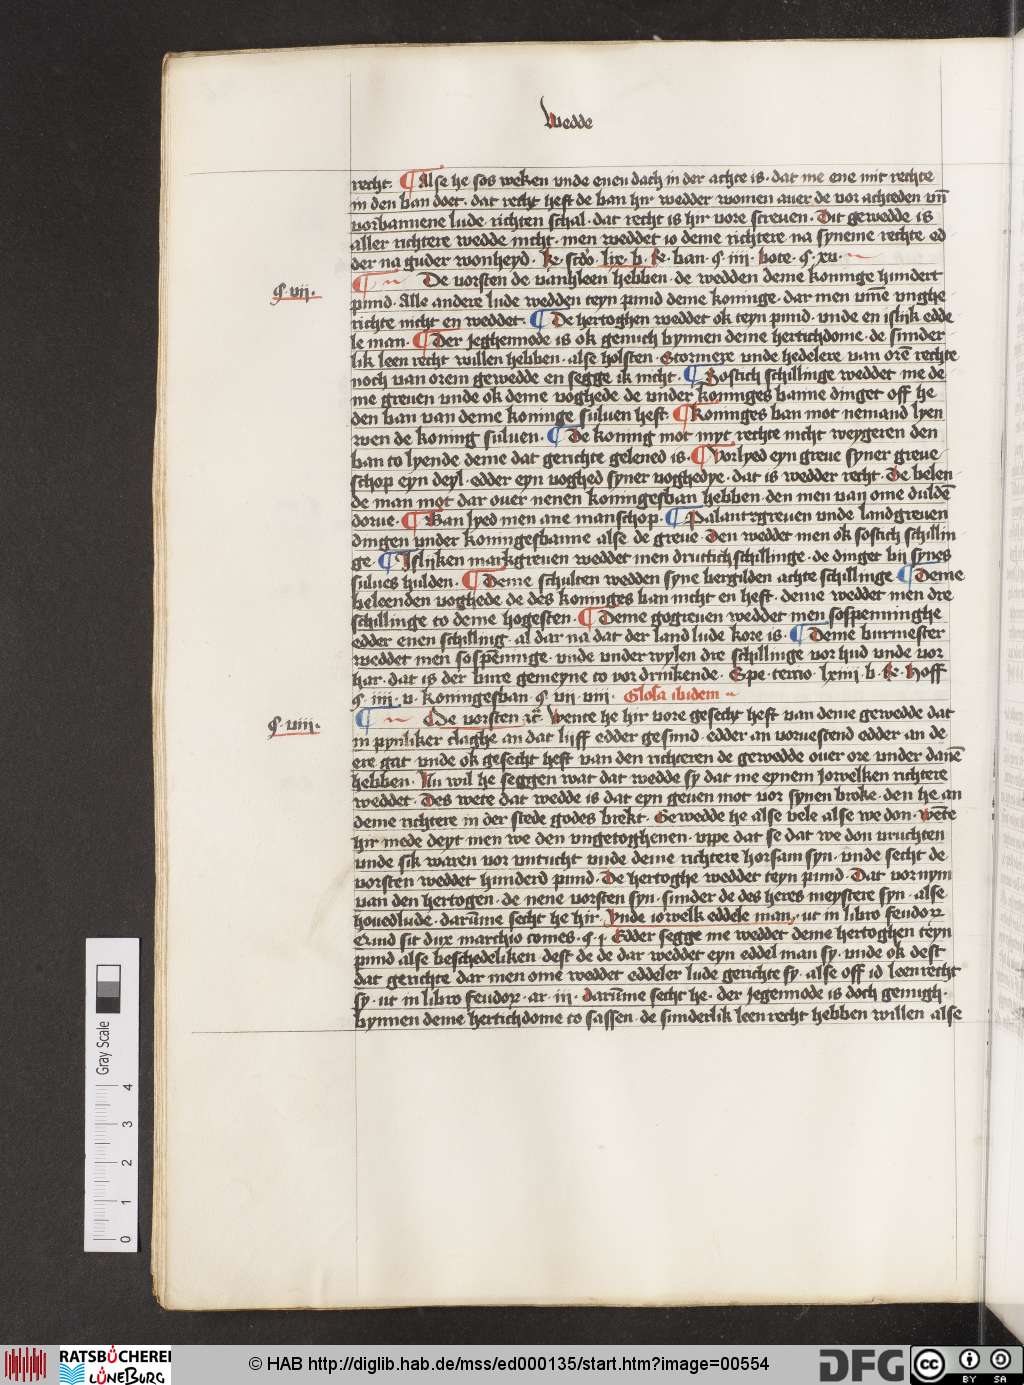 Wedde
recht. ¶ Alse he sos weken vnde enen dach in der achte is. dat me ene mit rechte
in den ban doet. dat recht heft de ban hir wedder women auer de vor achteden vn̄
vorbannene lude. richten schal. dat recht is hir vore screuen. Dit gewedde is
aller richtere wedde nicht. men weddet io deme richtere na syneme rechte ed
der na guder wonheyd. Re. scd̄o. lix. b. Re. ban. §. iii. bote. §. xv.
§. vii.
¶ De vorsten de vanhleen hebben. de wedden deme koninge hundert
pund. Alle andere lude wedden teyn pund deme koninge. dar men vm̄e vnghe
richte nicht en weddet. ¶ De hertoghen weddet ok teyn pund. vnde en islijk edde
le man. ¶ Der jeghennode is ok genuch bynnen deme hertichdome. de sunder
lik leen recht willen hebben. alse holsten. Stormere vnde hedelere van orē rechte
noch van orem gewedde en segge ik nicht. ¶ Sostich schillinge weddet me de
me greuen vnde ok deme voghede de vnder koninges banne dinget off he
den ban van deme koninge suluen heft ¶ Koninges ban mot nemand lyen
wen de koning suluen. ¶ De koning mot myt rechte nicht weygeren den
ban to lyende deme dat gerichte gelened is. ¶ Vorlyed eyn greue syner greue
schop eyn deyl. edder eyn voghed syner voghedye. dat is wedder recht. De belen
de man mot dar ouer nenen koningesban hebben. den men van ome duldē
dorue. ¶ Ban lyed men ane manschop. ¶ Palantzgreuen vnde landgreuen
dingen vnder koningesbanne alse de greue. Den weddet men ok sostich schillin
ge. ¶ Islijken markgreuen weddet men druttich schillinge. de dinget bij synes
sulues hulden. ¶ Deme schulten wedden syne bergilden achte schillinge ¶ Deme
beleenden voghede de des koninges ban nicht en heft. deme weddet men dre
schillinge to deme hogesten. ¶ Deme gogreuen weddet men sospenninghe
edder enen schilling. al dar na dat der land lude kore is. ¶ Deme burmester
weddet men sospēninge. vnde vnder wylen dre schillinge vor hud vnde vor
har. dat is der bure gemeyne to vordrinkende. Spe. tercio. lxiiii. b. Re. Hoff
§. iiii. v. koningesban. §. vii. viii. Glosa ibidem
§. viii.
¶ De vorsten ꝛc̄. Wente he hir vore gesecht heft van deme gewedde dat
in pynliker claghe an dat lijff edder gesund. edder an voruestend edder an de
ere gat vnde ok gesecht heft van den richteren de gewedde ouer ore vnder danē
hebben. Nu wil he seggen wat dat wedde sy dat me eynem jowelken richtere
weddet. Des wete dat wedde is dat eyn geuen mot vor synen broke. den he an
deme richtere in der stede godes brekt. Gewedde he alse vele alse we don. wēte
hir mede deyt men we den vngetoghenen. vppe dat se dat we don vruchten
vnde sik waren vor vntucht vnde deme richtere horsam syn. vnde secht de
vorsten weddet hunderd pund. De hertoghe weddet teyn pund. Dat vornym
van den hertogen. de nene vorsten syn. sunder de des heres meystere syn. alse
houedlude. darūme secht he hir. Vnde iowelk eddele man. ut in libro feudoꝝ
§. i. Edder segge me weddet deme hertoghen teyn
pund alse beschedeliken. dest de de dar weddet eyn eddel man sy. vnde ok dest
dat gerichte dar men ome weddet eddeler lude gerichte sy. alse off id leenrecht
sy. ut in libro feudoꝝ. ar. iii. darūme secht he. der jegennode is doch genugh.
bynnen deme hertichdome to sassen. de sunderlik leen recht hebben willen alse
Gray Scale
0 1 2 3 4
RATSBÜCHEREI LÜNEBURG
© HAB http://diglib.hab.de/mss/ed000135/start.htm?image=00554
DFG
CC BY SA